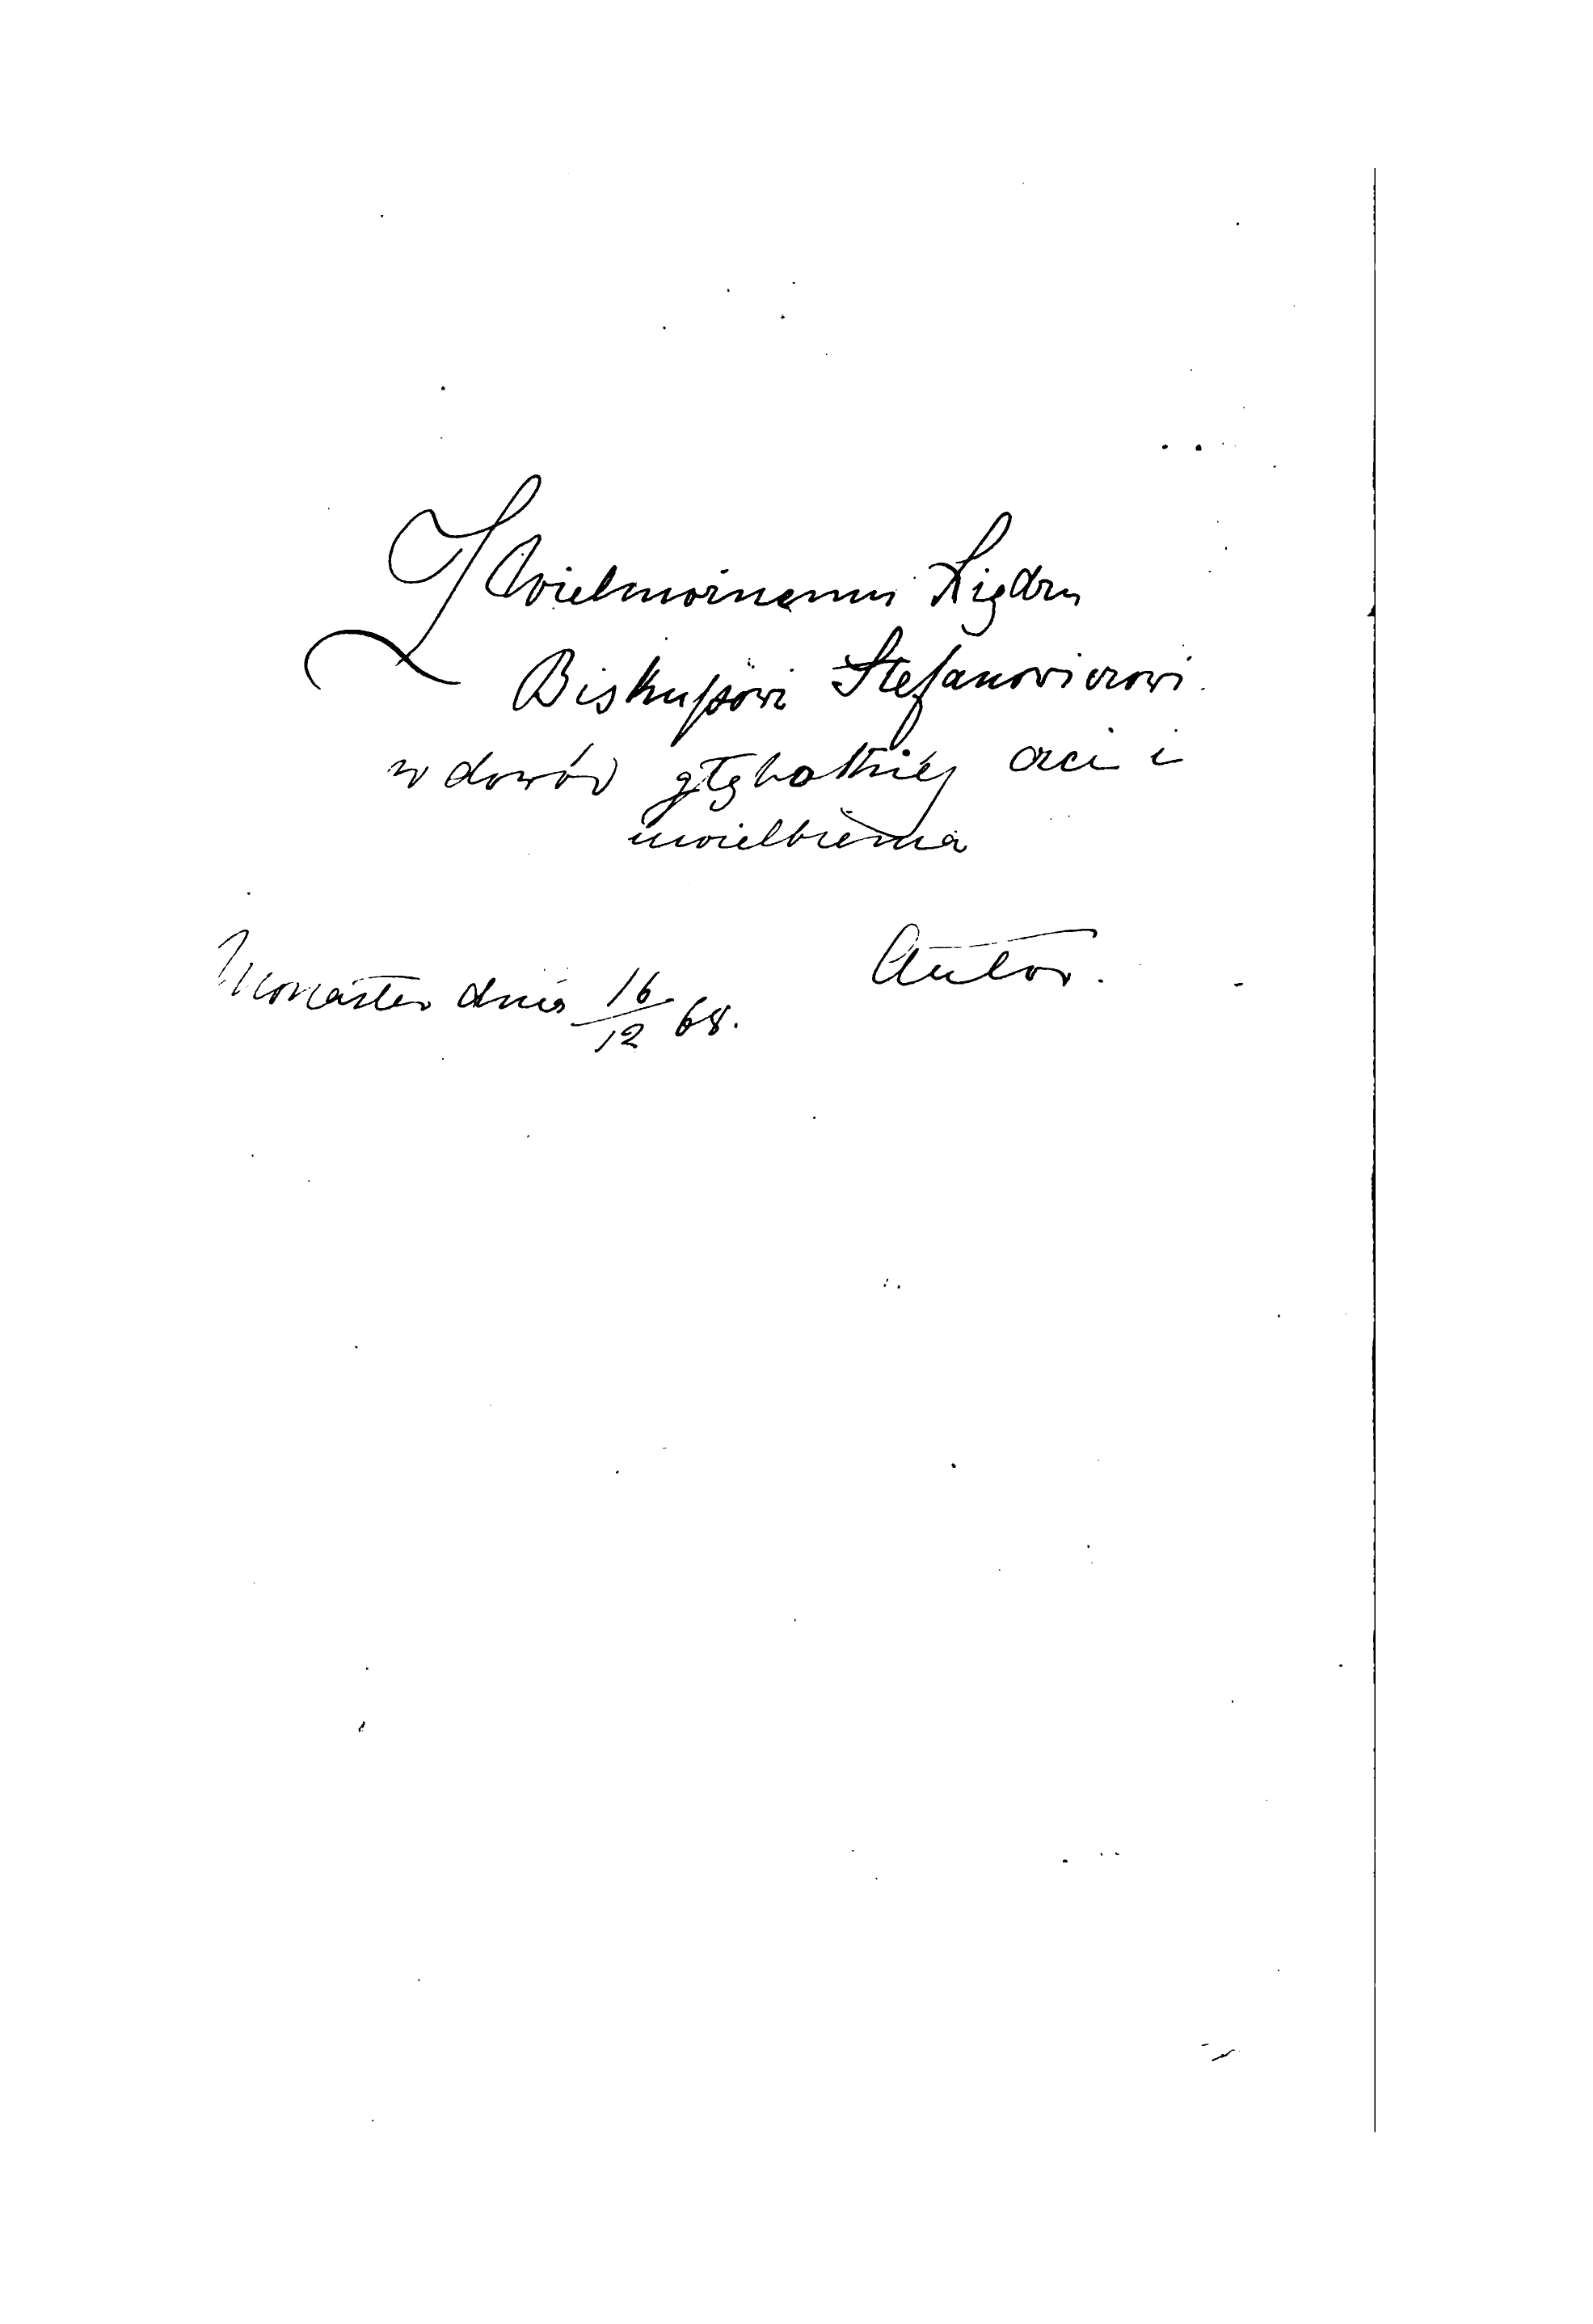 JWielmożnemu Xiędzu
Biskupowi Stefanowiczowi.
w dowód głębokiéj czci i
uwielbienia
Autor.
dnia 16/12 68.